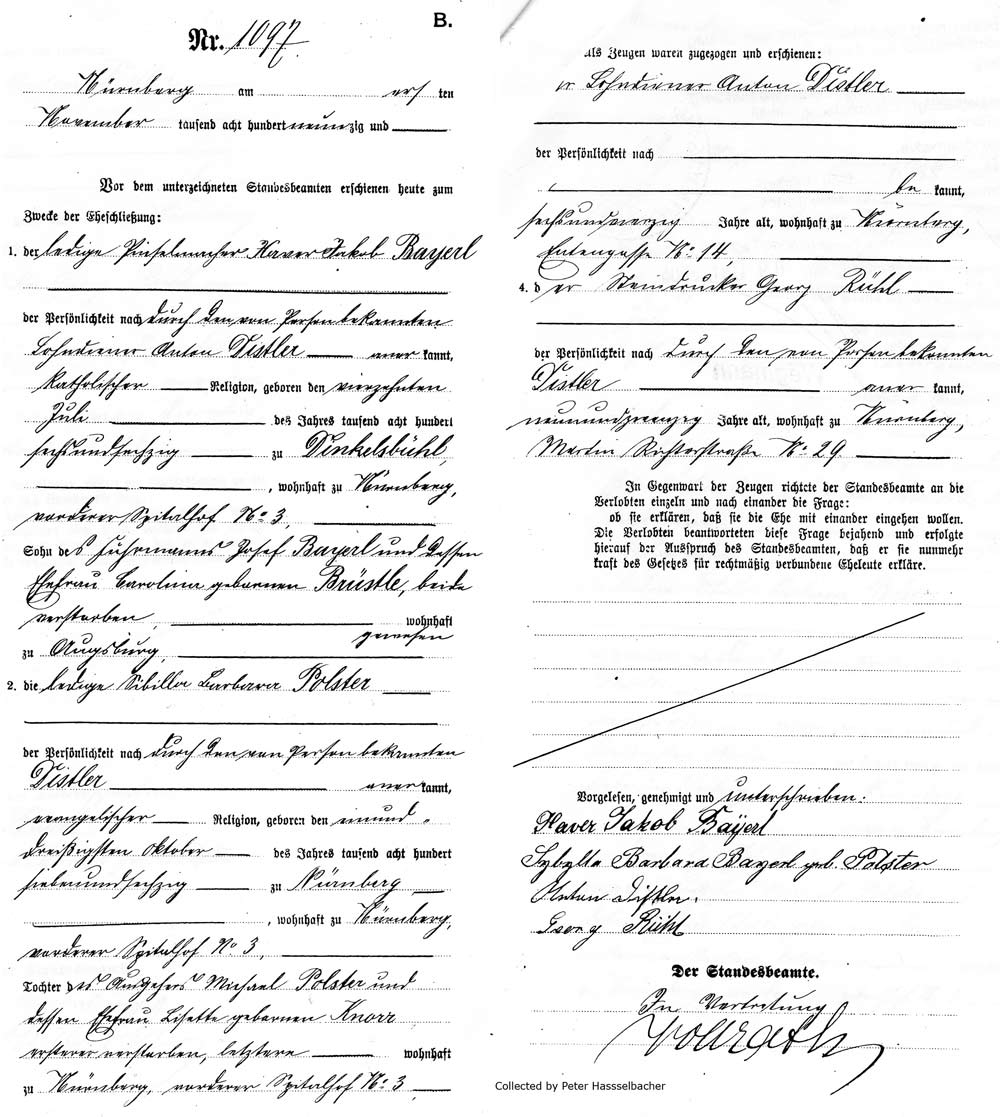 B.
Nr. 1097
Nürnberg am ersten
November tausend acht hundert neunzig und
Vor dem unterzeichneten Standesbeamten erschienen heute zum
Zwecke der Eheschließung:
1. der ledige Pinselmacher Xaver Jakob Bayerl
der Persönlichkeit nach durch den von Person bekannten
Lohndiener Anton Distler anerkannt,
katholischer Religion, geboren den vierzehnten
Juli des Jahres tausend acht hundert
sechsundsechzig zu Dinkelsbühl,
, wohnhaft zu Nürnberg,
vorderer Spitalhof No 3,
Sohn des Fuhrmanns Josef Bayerl und dessen
Ehefrau Carolina gebornen Brüstle, beide
verstorben, wohnhaft
gewesen
zu Augsburg,
2. die ledige Sibilla Barbara Polster
der Persönlichkeit nach durch den von Person bekannten
Distler anerkannt,
evangelischer Religion, geboren den einund-
dreißigsten Oktober des Jahres tausend acht hundert
siebenundsechzig zu Nürnberg
, wohnhaft zu Nürnberg,
vorderer Spitalhof No 3,
Tochter des Ausgehers Michael Polster und
dessen Ehefrau Lisette gebornen Knorr
ersterer verstorben, letztere wohnhaft
zu Nürnberg, vorderer Spitalhof No 3
Als Zeugen waren zugezogen und erschienen:
er Lohndiener Anton Distler
der Persönlichkeit nach
bekannt,
sechsundvierzig Jahre alt, wohnhaft zu Nürnberg,
Entengasse No 14,
4. der Steindrucker Georg Rühl
der Persönlichkeit nach durch den von Person bekannten
Distler anerkannt,
neunundzwanzig Jahre alt, wohnhaft zu Nürnberg,
Martin Richterstraße No 29
In Gegenwart der Zeugen richtete der Standesbeamte an die
Verlobten einzeln und nach einander die Frage:
ob sie erklären, daß sie die Ehe mit einander eingehen wollen.
Die Verlobten beantworteten diese Frage bejahend und erfolgte
hierauf der Ausspruch des Standesbeamten, daß er sie nunmehr
kraft des Gesetzes für rechtmäßig verbundene Eheleute erkläre.
Vorgelesen, genehmigt und unterschrieben:
Xaver Jakob Bayerl
Sybylla Barbara Bayerl geb. Polster
Anton Distler.
Georg Rühl
Der Standesbeamte.
In Vertretung
Vollrath
Collected by Peter Hassselbacher